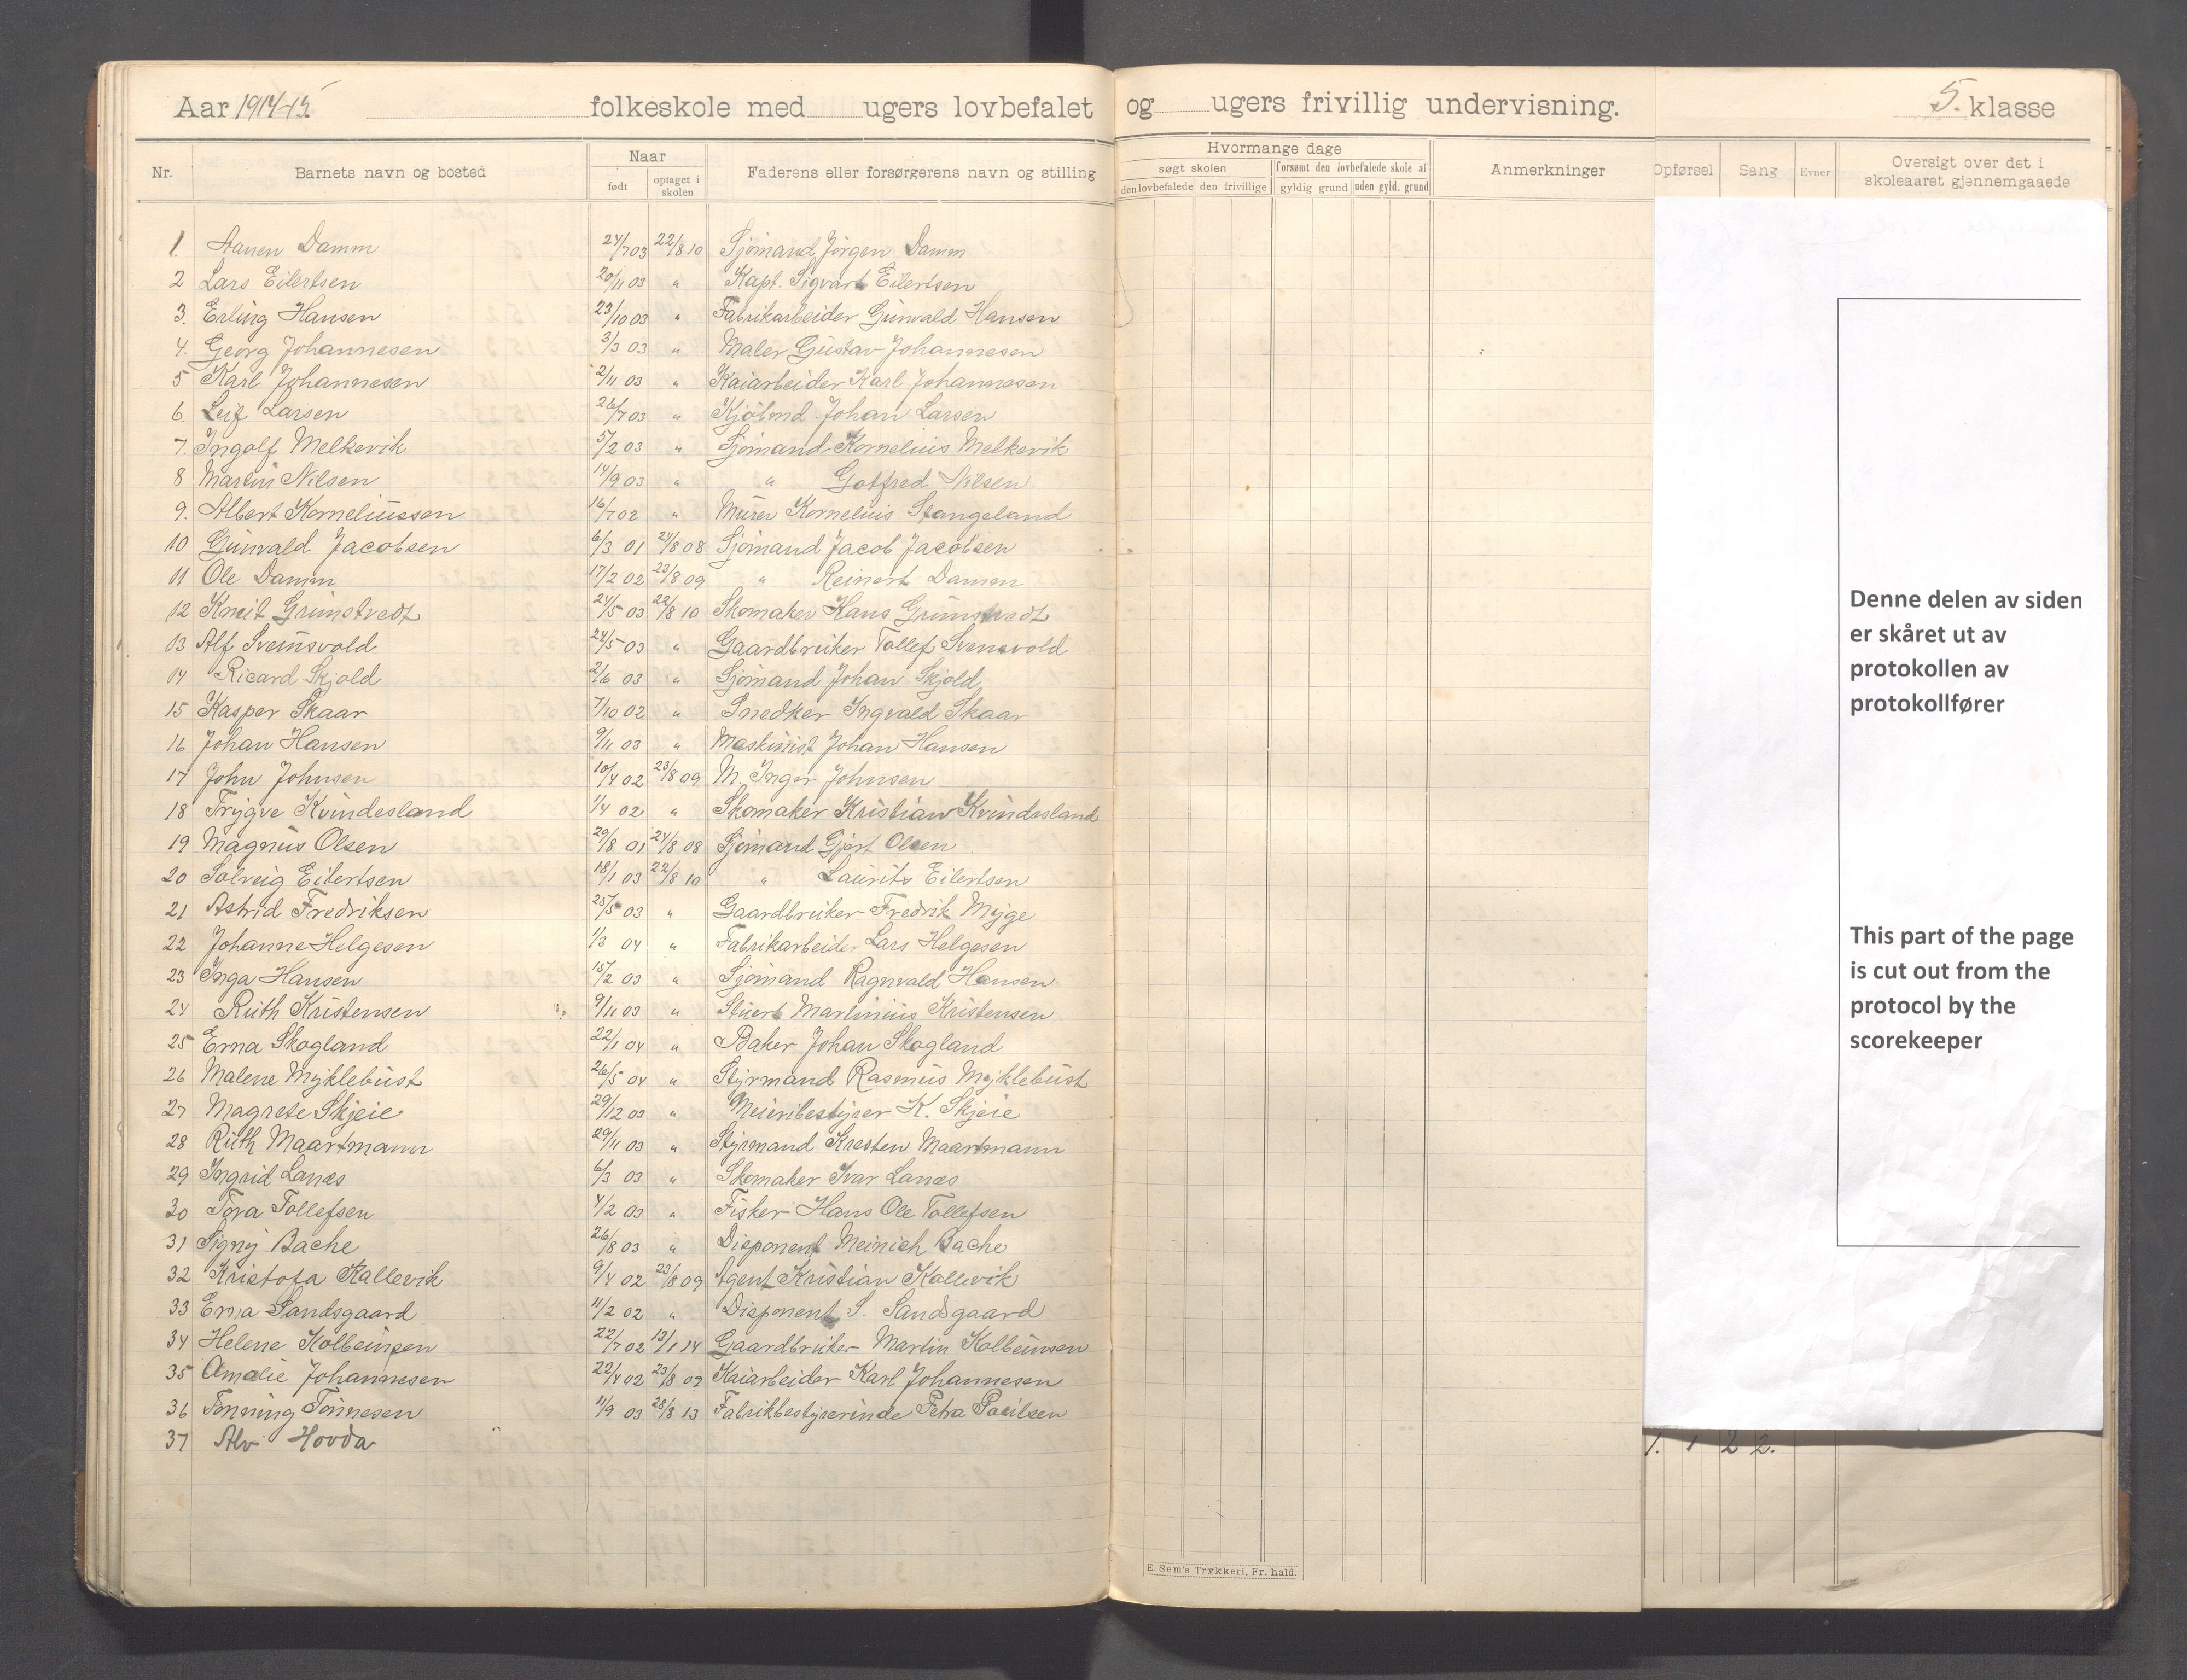 Aar 1914-15. folkeskole med ugers lovbefalet og ugers frivillig undervisning. 5. klasse
Nr. Barnets navn og bosted Naar født optaget i skolen Faderens eller forsørgerens navn og stilling
Hvormange dage
søgt skolen forsømt den lovbefalede skole af
den lovbefalede den frivillige gyldig grund uden gyld. grund
Anmerkninger Opførsel Sang Evner Oversigt over det i skoleaaret gjennemgaaede
1. Hanen Damm 24/7 03 22/8 10 Sjømand Jørgen Damm
2 Lars Eilertsen 20/11 03 " Kapt. Sigvart Eilertsen
3. Erling Hansen 23/10 03 " Fabrikarbeider Gunvald Hansen
4. Georg Johannesen 3/3 03 " Maler Gustav Johannesen
5 Karl Johannesen 2/11 03 " Kaiarbeider Karl Johannesen
6. Leif Larsen 26/7 03 " Kjøbmd. Johan Larsen
7. Ingolf Melkevik 5/2 03 " Sjømand Kornelius Melkevik
8 Martin Nilsen 14/9 03 " " Gotfred Nilsen
9. Albert Korneliussen 16/7 02 " Murer Kornelius Stangeland
10 Gunvald Jacobsen 6/3 01 24/8 08 Sjømand Jacob Jacobsen
11 Ole Damm 17/2 02 23/8 09 " Reinert Damm
12 Knut Grimstvedt 24/5 03 22/8 10 Skomaker Hans Grimstvedt
13 Alf Sveinsvold 24/5 03 " Gaardbruker Tollef Svensvold
14 Ricard Skjold 2/6 03 " Sjømand Johan Skjold
15 Kasper Skaar 7/10 02 " Snedker Ingvald Skaar
16 Johan Hansen 9/11 03 " Maskinist Johan Hansen
17 John Johnsen 10/4 02 23/8 09 M. Inger Johnsen
18 Trygve Kvindesland 1/4 02 " Skomaker Kristian Kvindesland
19 Magnus Olsen 29/8 01 24/8 08 Sjømand Gjert Olsen
20 Solveig Eilertsen 18/1 03 22/8 10 " Laurits Eilertsen
21 Astrid Fredriksen 25/5 03 " Gaardbruker Fredrik Myge
22 Johanne Helgesen 1/3 04 " Fabrikarbeider Lars Helgesen
23 Inga Hansen 15/2 03 " Sjømand Ragnvald Hansen
24 Ruth Kristensen 9/11 03 " Stuert Martinius Kristensen
25 Erna Skogland 22/1 04 " Baker Johan Skogland
26 Malene Myklebust 26/5 04 " Styrmand Rasmus Myklebust
27 Magrete Skjeie 29/12 03 " Meieribestyrer K. Skjeie
28 Ruth Maartmann 29/11 03 " Styrmand Kresten Maartmann
29 Ingrid Lanes 6/3 03 " Skomaker Ivar Lanes
30 Tora Tollefsen 4/2 03 " Fisker Hans Ole Tollefsen
31 Signy Bache 26/8 03 " Disponent Meinich Bache
32 Kristofa Kallevik 9/4 02 23/8 09 Agent Kristian Kallevik
33 Erna Sandsgaard 11/2 02 " Disponent S. Sandsgaard
34 Helene Kolbeinsen 22/7 02 13/1 14 Gaardbruker Martin Kolbeinsen
35 Amalie Johannesen 22/4 02 23/8 09 Kaiarbeider Karl Johannesen
36 Tønning Tønnesen 11/9 03 28/8 13 Fabrikbestyrerinde Petra Poulsen
37 Alv Hovda
1. 1 2 2.
E. Sem's Trykkeri, Fr. hald.
Denne delen av siden
er skåret ut av
protokollen av
protokollfører
This part of the page
is cut out from the
protocol by the
scorekeeper